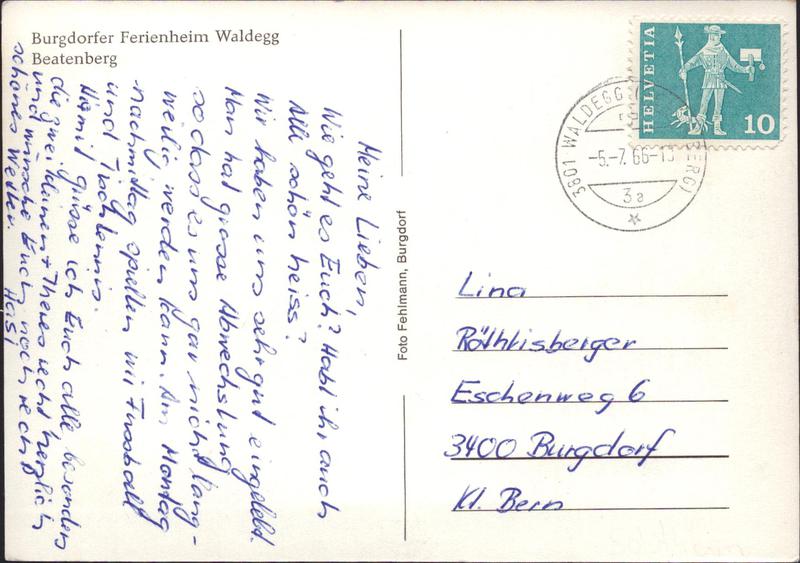 Burgdorfer Ferienheim Waldegg
Beatenberg
Meine Lieben,
Wie geht es Euch? Habt ihr auch
Alle schön heiss?
Wir haben uns sehr gut eingelebt.
Man hat grosse Abwechslung
so dass es uns gar nicht lang-
weilig werden kann. Am Montag
nachmittag spielten wir Fussball
und Tischtennis.
Hiemit grüsse ich Euch alle, besonders
die zwei kleinen + Theres recht herzlich
und wünsche Euch noch recht
schönes Wetter.
Foto Fehlmann, Burgdorf
HELVETIA
10
3801 WALDEGG BERG)
-5.-7.66-1
3a
Lina
Röthlisberger
Eschenweg 6
3400 Burgdorf
Kt. Bern